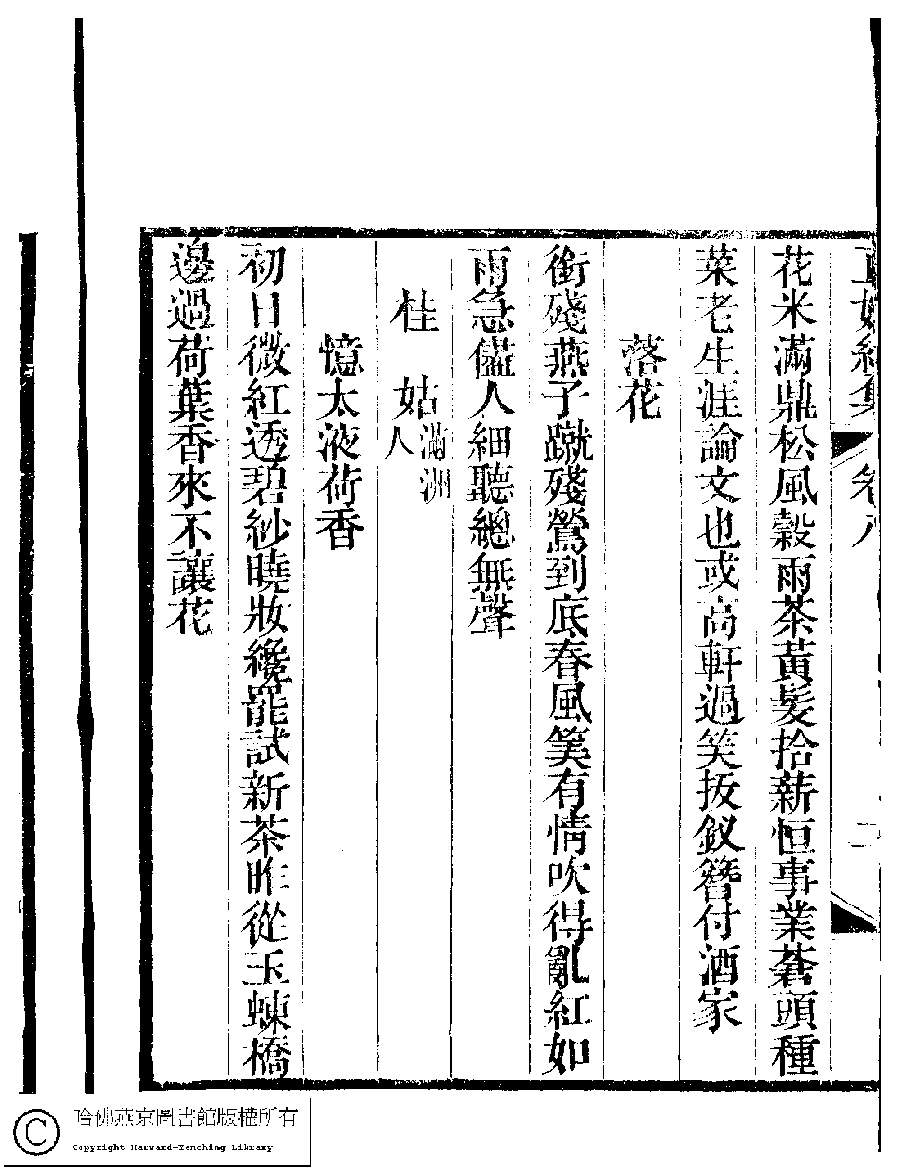 正始續集 卷八 二
花米滿鼎松風穀雨茶黃髮拾薪恒事業蒼頭種
菜老生涯論文也或高軒過笑拔釵簪付酒家
落花
銜殘燕子蹴殘鶯到底春風筭有情吹得亂紅如
雨急儘人細聽總無聲
桂姑滿洲人
憶太液荷香
初日微紅透碧紗曉妝纔罷試新茶昨從玉蝀橋
邊過荷葉香來不讓花
哈佛燕京圖書館版權所有
Copyright Harvard-Yenching Library